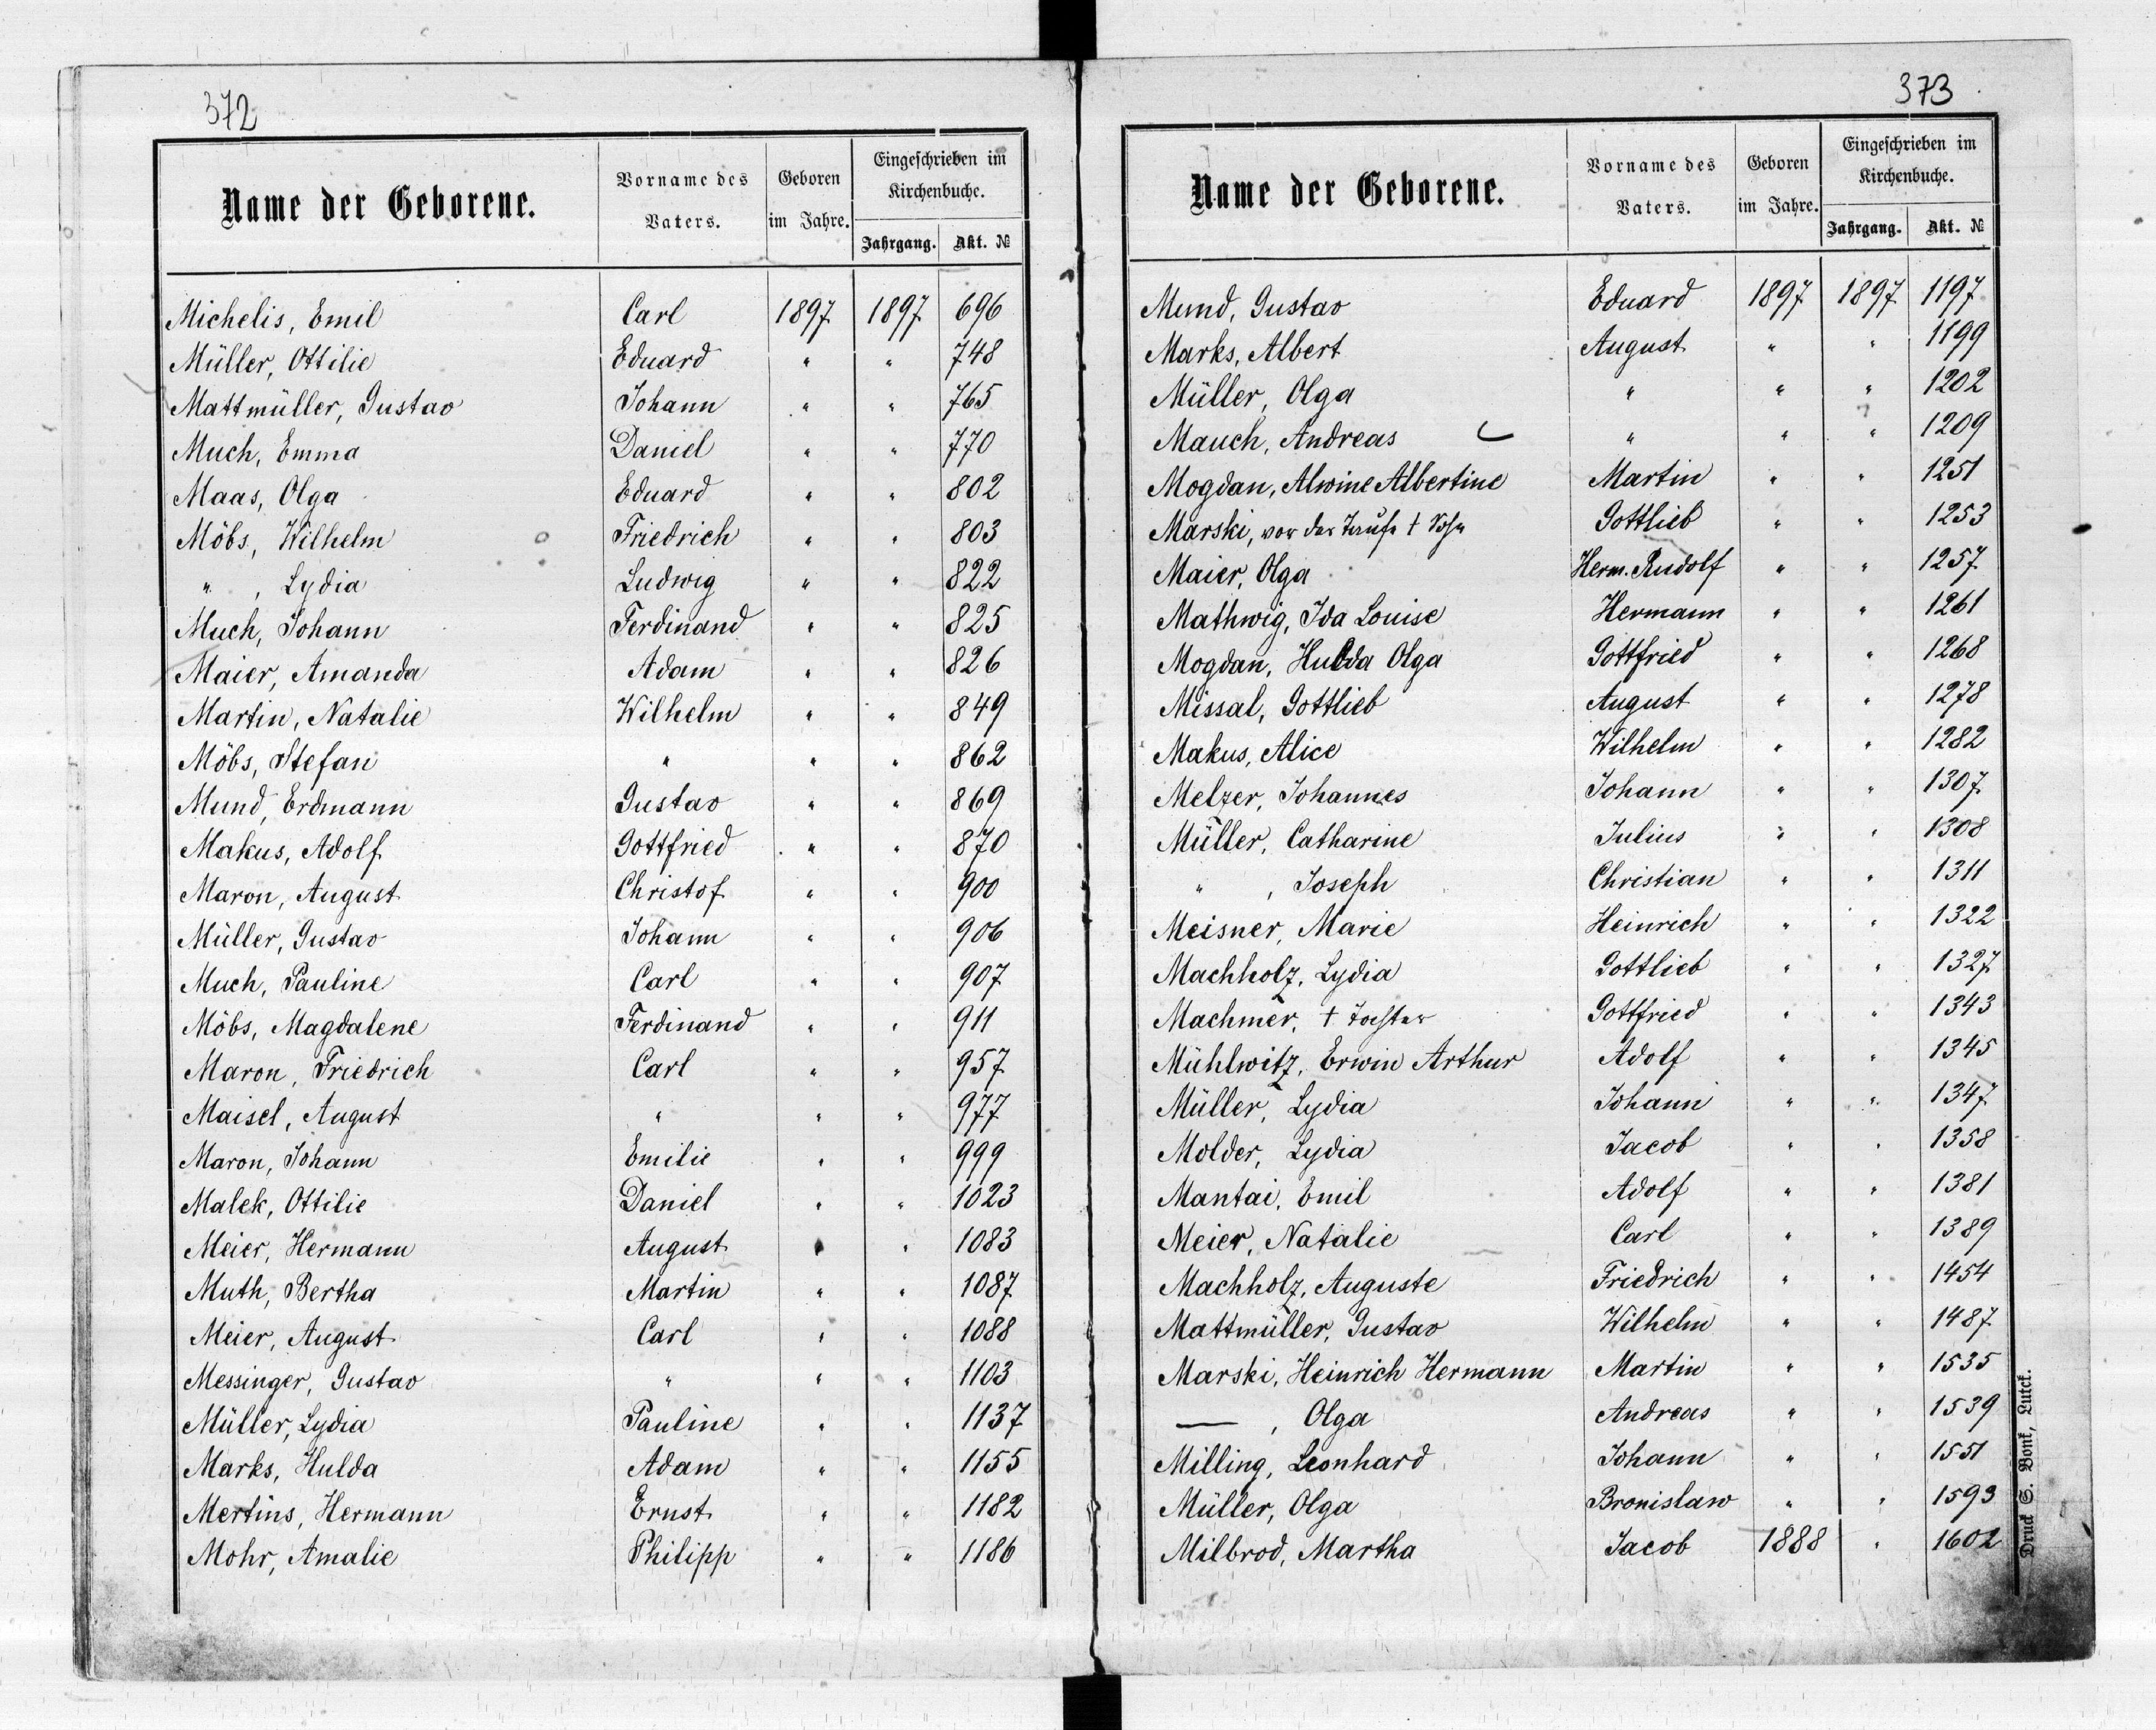 372
Name der Geborene. Vorname des Vaters. Geboren im Jahre. Eingeschrieben im Kirchenbuche. Jahrgang. Akt. №
Michelis, Emil Carl 1897 1897 696
Müller, Ottilie Eduard " " 748
Mattmüller, Gustav Johann " " 765
Much, Emma Daniel " " 770
Maas, Olga Eduard " " 802
Möbs, Wilhelm Friedrich " " 803
" , Lydia Ludwig " " 822
Much, Johann Ferdinand " " 825
Maier, Amanda Adam " " 826
Martin, Natalie Wilhelm " " 849
Möbs, Stefan " " " 862
Mund, Erdmann Gustav " " 869
Makus, Adolf Gottfried " " 870
Maron, August Christof " " 900
Müller, Gustav Johann " " 906
Much, Pauline Carl " " 907
Möbs, Magdalene Ferdinand " " 911
Maron, Friedrich Carl " " 957
Maisel, August " " " 977
Maron, Johann Emilie " " 999
Malek, Ottilie Daniel " " 1023
Meier, Hermann August " " 1083
Muth, Bertha Martin " " 1087
Meier, August Carl " " 1088
Messinger, Gustav " " " 1103
Müller, Lydia Pauline " " 1137
Marks, Hulda Adam " " 1155
Mertins, Hermann Ernst " " 1182
Mohr, Amalie Philipp " " 1186
373
Name der Geborene. Vorname des Vaters. Geboren im Jahre. Eingeschrieben im Kirchenbuche. Jahrgang. Akt. №
Mund, Gustav Eduard 1897 1897 1197
Marks, Albert August " " 1199
Müller, Olga " " " 1202
Mauch, Andreas " " " 1209
Mogdan, Alwine Albertine Martin " " 1251
Marski, vor der Taufe † Sohn Gottlieb " " 1253
Maier, Olga Herm. Rudolf " " 1257
Mathwig, Ida Louise Hermann " " 1261
Mogdan, Hulda Olga Gottfried " " 1268
Missal, Gottlieb August " " 1278
Makus, Alice Wilhelm " " 1282
Melzer, Johannes Johann " " 1307
Müller, Catharine Julius " " 1308
" , Joseph Christian " " 1311
Meisner, Marie Heinrich " " 1322
Machholz, Lydia Gottlieb " " 1327
Machmer, † Tochter Gottfried " " 1343
Mühlwitz, Erwin Arthur Adolf " " 1345
Müller, Lydia Johann " " 1347
Molder, Lydia Jacob " " 1358
Mantai, Emil Adolf " " 1381
Meier, Natalie Carl " " 1389
Machholz, Auguste Friedrich " " 1454
Mattmüller, Gustav Wilhelm " " 1487
Marski, Heinrich Hermann Martin " " 1535
— , Olga Andreas " " 1539
Milling, Leonhard Johann " " 1551
Müller, Olga Bronislaw " " 1593
Milbrod, Martha Jacob 1888 " 1602
Druck S. Bonk, Lutck.